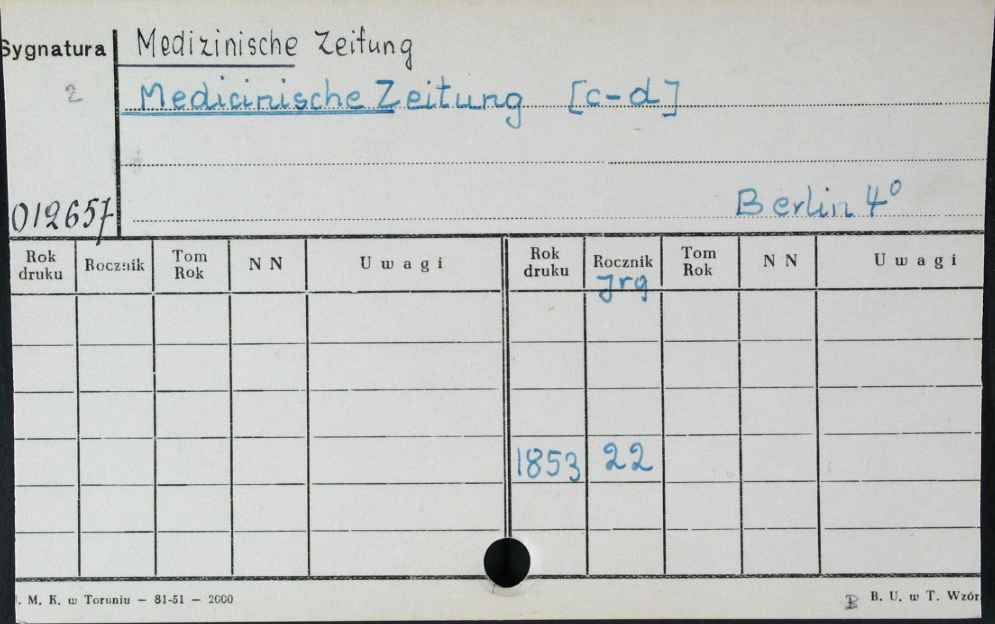 Sygnatura
Medizinische Zeitung
2
Medicinische Zeitung [c-d]
012657
Berlin 4°
Rok druku Rocznik Tom Rok N N Uwagi Rok druku Rocznik Tom Rok N N Uwagi
Jrg
1853 22
. M. K. w Toruniu — 81-51 — 2000
B. U. w T. Wzór